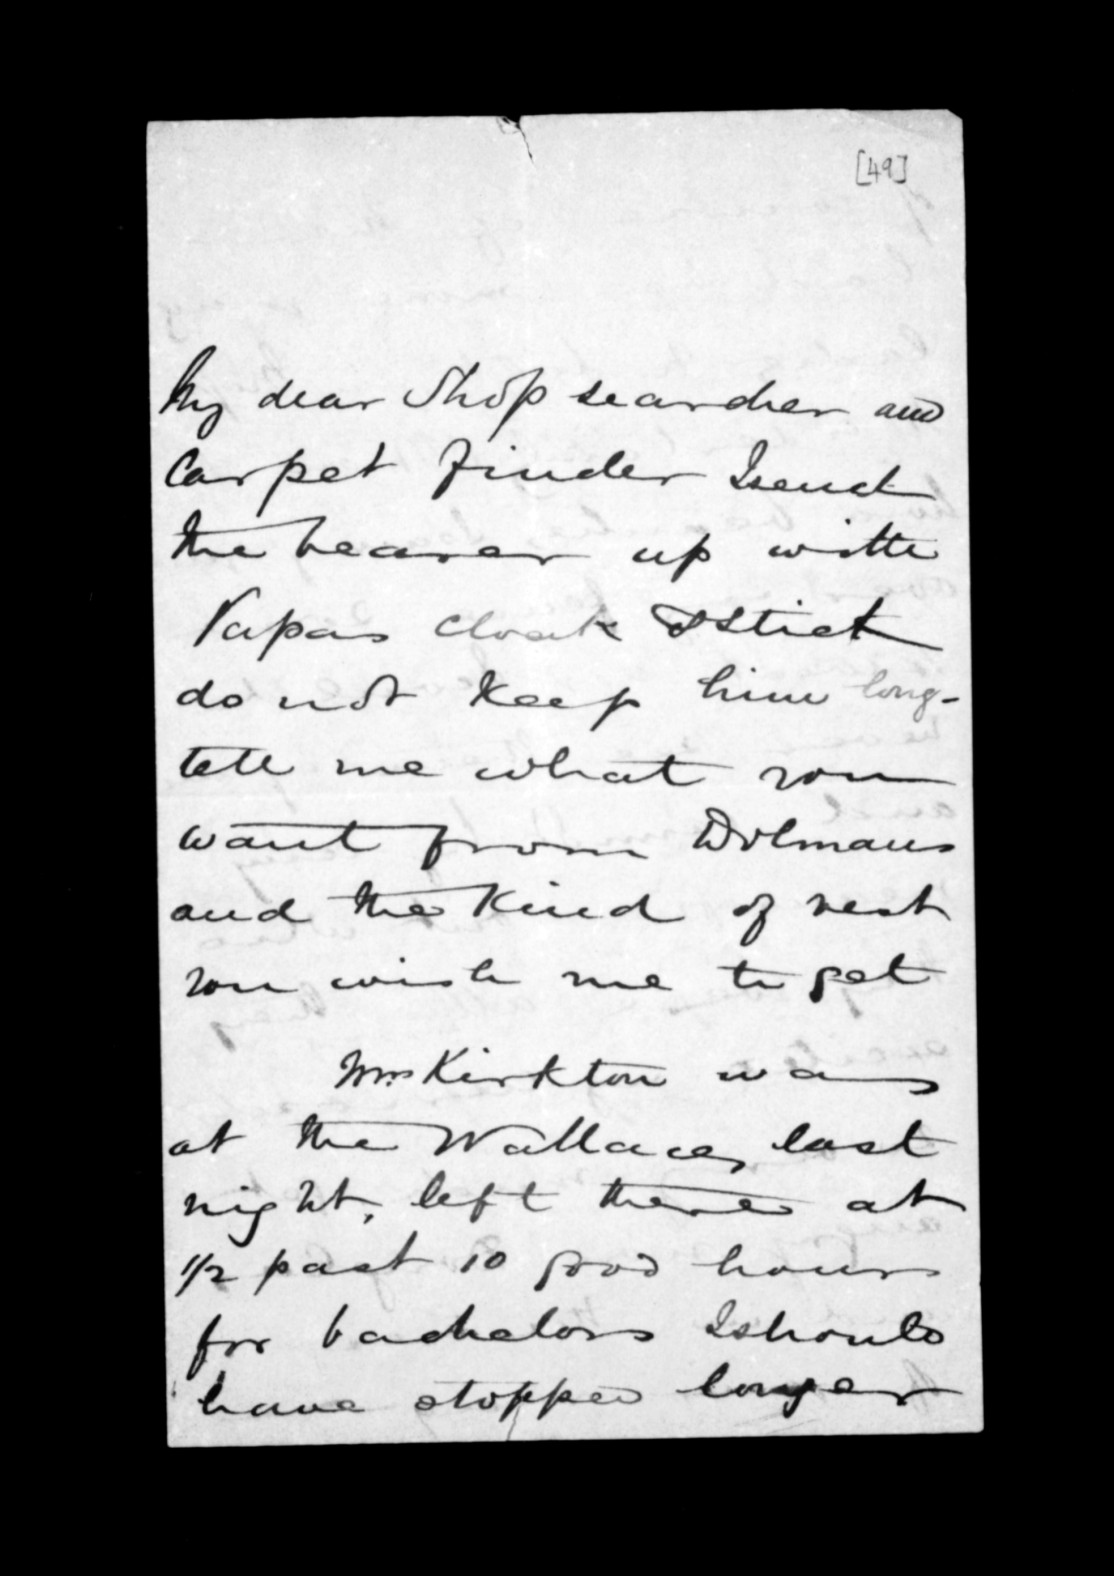 [49]
My dear Shop searcher and
Carpet finder I send
the bearer up with
Papas cloak & stick
do not keep him long-
tell me what you
want from Dolmans
and the Kind of vest
you wish me to get
Mrs Kirkton was
at the Wallaces last
night, left there at
1/2 past 10 good hours
for bachelors I should
have stopped longer